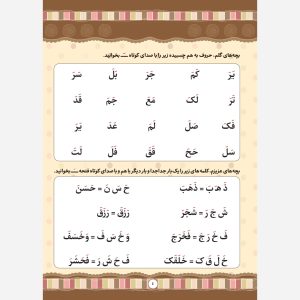 بچه‌های گلم، حروف به هم چسبیده زیر را با صدای کوتاه ـَـ بخوانید.
بَرَ کَمَ جَزَ بَلَ سَرَ
تَرَ لَکَ مَعَ جَمَ قَدَ
فَکَ صَلَ لَمَ عَدَ یَرَ
سَلَ حَجَ فَقَ قَلَ لَتَ
بچه‌های عزیزم، کلمه های زیر را یک بار جدا جدا و بار دیگر با هم و با صدای کوتاه فتحه ـَـ بخوانید.
ذَ هَـ بَ = ذَهَبَ حَ سَ نَ = حَسَنَ
شَ جَ رَ = شَجَرَ رَزَقَ = رَزَقَ
فَ خَ رَ جَ = فَخَرَجَ وَ خَ سَ فَ = وَخَسَفَ
خَ لَ قَ کَ = خَلَقَکَ فَ حَ شَ رَ = فَحَشَرَ